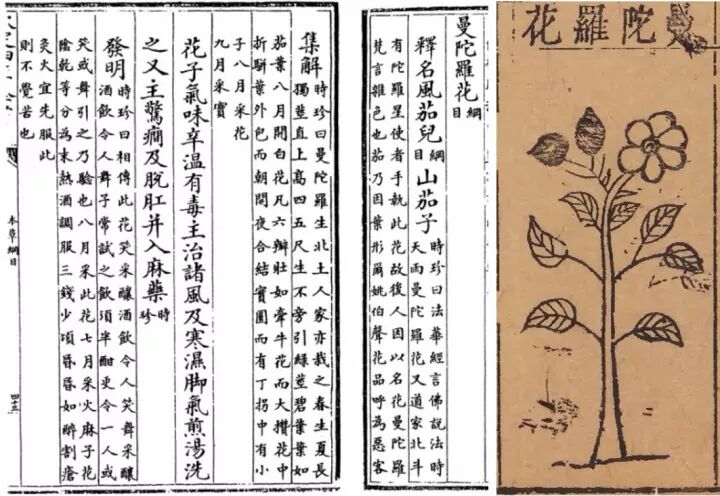 陀羅花
曼陀羅花綱目
釋名風茄兒綱目山茄子時珍曰法華經言佛說法時
天雨曼陀羅花又道家北斗
有陀羅星使者手執此花故後人因以名花曼陀羅
梵言雜色也茄乃因葉形爾姚伯聲花品呼為惡客
集解時珍曰曼陀羅生北土人家亦栽之春生夏長
獨莖直上高四五尺生不旁引綠莖碧葉葉如
茄葉八月開白花凡六瓣壯如牽牛花而大攢花中
折駢葉外包而朝開夜合結實圓而有丁拐中有小
子八月采花
九月采實
花子氣味辛温有毒主治諸風及寒濕脚氣煎湯洗
之又主驚癇及脫肛并入麻藥時珍
發明時珍曰相傳此花笑采釀酒飲令人笑舞采釀
酒飲令人舞予常試之飲須半酣更令一人或
笑或舞引之乃驗也八月采此花七月采火麻子花
陰乾等分為末熱酒調服三錢少頃昏昏如醉割瘡
灸火宜先服此
則不覺苦也
本草綱目
四十三